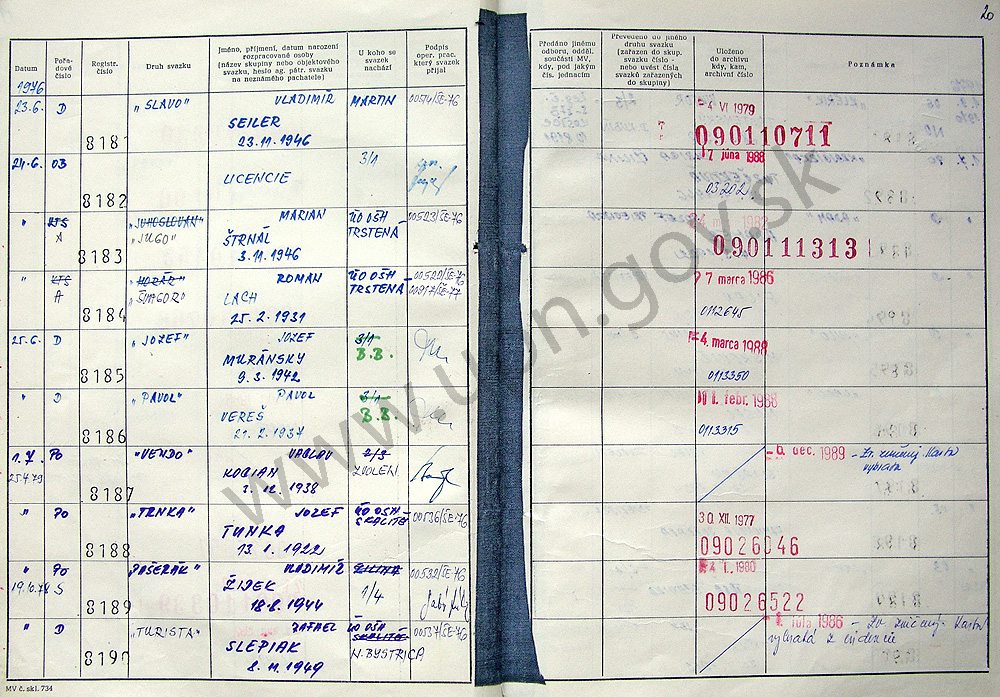 20
Datum
Pořadové číslo
Registr. číslo
Druh svazku
Jméno, příjmení, datum narození rozpracované osoby (název skupiny nebo objektového svazku, heslo ag. pátr. svazku na neznámého pachatele)
U koho se svazek nachází
Podpis oper. prac. který svazek přijal
Předáno jinému odboru, odděl. součásti MV, kdy, pod jakým čís. jednacím
Převedeno do jiného druhu svazku (zařazen do skup. svazku číslo - nebo uvést čísla svazků zařazených do skupiny)
Uloženo do archivu kdy, kam, archivní číslo
Poznámka
1976
23.6. D 8181 "SLAVO" VLADIMÍR MARTIN 00514/ŠE-76 4 VI 1979
SEILER 090110711
23.11.1946
24.6. 03 8182 3/1 7 júna 1988
LICENCIE 03202
" KTS "JUHOSLOVAN" MARIAN ÚO OŠH 00523/ŠE-76
A 8183 "JUGO" ŠTRNÁL TRSTENÁ 090111313
3.11.1946
" KTS "HORÁR" ROMAN ÚO OŠH 00520/ŠE-76 7 marca 1986
A 8184 "ŠVAGOR" LACH TRSTENÁ 00917/ŠE-77
25.2.1931 0112645
25.6. D 8185 "JOZEF" JOZEF 3/1 4. marca 1988
MURÁNSKY B.B.
9.3.1942 0113350
" D 8186 "PAVOL" PAVOL 3/1 febr. 1988
VEREŠ B.B.
21.2.1937 0113315
1.7. Po 8187 "VENDO" VACLAV 2/3 dec. 1989 - Zv. zničený Karta
25.4.79 KOBIAN ZVOLEN vybratá
1938
" Po 8188 "TRNKA" JOZEF ÚO OŠH 00536/ŠE-76 30 XII. 1977
TUNKA SKALITÉ 09026046
13.1.1922
" Po 8189 "PAŠERÁK" VLADIMÍR ŽILINA 00532/ŠE-76 1980
19.10.78 S ŽIDEK 1/4 09026522
18.8.1944
" D 8190 "TURISTA" RAFAEL ÚO OŠH 00537/ŠE-76 1986 - Zv. zničený. Karta
SLEPIAK SKALITÉ vybratá z evidencie
8.11.1949 N. BYSTRICA
MV č. skl. 734
www.upn.gov.sk